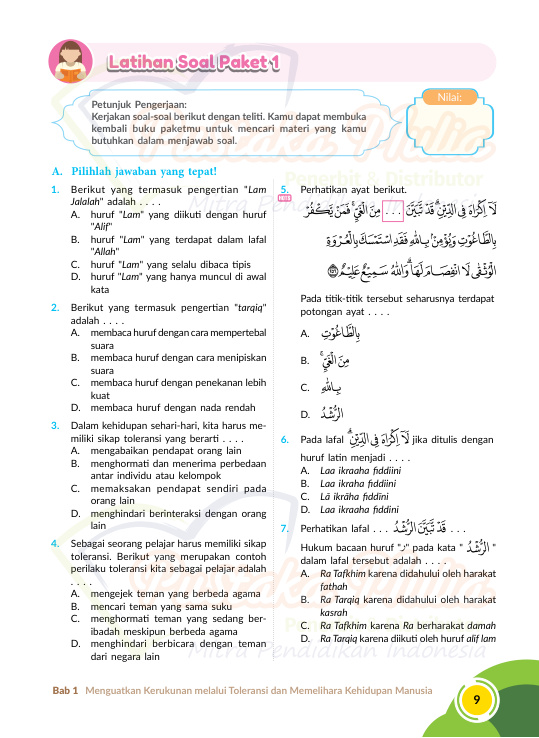 Latihan Soal Paket 1
Petunjuk Pengerjaan:
Kerjakan soal-soal berikut dengan teliti. Kamu dapat membuka
kembali buku paketmu untuk mencari materi yang kamu
butuhkan dalam menjawab soal.
Nilai:
A. Pilihlah jawaban yang tepat!
1. Berikut yang termasuk pengertian "Lam
Jalalah" adalah . . . .
A. huruf "Lam" yang diikuti dengan huruf
"Alif"
B. huruf "Lam" yang terdapat dalam lafal
"Allah"
C. huruf "Lam" yang selalu dibaca tipis
D. huruf "Lam" yang hanya muncul di awal
kata
2. Berikut yang termasuk pengertian "tarqiq"
adalah . . . .
A. membaca huruf dengan cara mempertebal
suara
B. membaca huruf dengan cara menipiskan
suara
C. membaca huruf dengan penekanan lebih
kuat
D. membaca huruf dengan nada rendah
3. Dalam kehidupan sehari-hari, kita harus me-
miliki sikap toleransi yang berarti . . . .
A. mengabaikan pendapat orang lain
B. menghormati dan menerima perbedaan
antar individu atau kelompok
C. memaksakan pendapat sendiri pada
orang lain
D. menghindari berinteraksi dengan orang
lain
4. Sebagai seorang pelajar harus memiliki sikap
toleransi. Berikut yang merupakan contoh
perilaku toleransi kita sebagai pelajar adalah
. . . .
A. mengejek teman yang berbeda agama
B. mencari teman yang sama suku
C. menghormati teman yang sedang ber-
ibadah meskipun berbeda agama
D. menghindari berbicara dengan teman
dari negara lain
5. Perhatikan ayat berikut.
لَآ اِكْرَاهَ فِى الدِّيْنِۗ قَدْ تَّبَيَّنَ . . . مِنَ الْغَيِّۚ فَمَنْ يَّكْفُرْ
بِالطَّاغُوْتِ وَيُؤْمِنْۢ بِاللّٰهِ فَقَدِ اسْتَمْسَكَ بِالْعُرْوَةِ
الْوُثْقٰى لَا انْفِصَامَ لَهَاۗ وَاللّٰهُ سَمِيْعٌ عَلِيْمٌ ۝٢٥٦
Pada titik-titik tersebut seharusnya terdapat
potongan ayat . . . .
A. بِالطَّاغُوْتِ
B. مِنَ الْغَيِّۚ
C. بِاللّٰهِ
D. الرُّشْدُ
6. Pada lafal لَآ اِكْرَاهَ فِى الدِّيْنِۗ jika ditulis dengan
huruf latin menjadi . . . .
A. Laa ikraaha fiddiini
B. Laa ikraha fiddiini
C. Lā ikrāha fiddīni
D. Laa ikraaha fiddini
7. Perhatikan lafal . . . قَدْ تَّبَيَّنَ الرُّشْدُ . . .
Hukum bacaan huruf "ر" pada kata " الرُّشْدُ "
dalam lafal tersebut adalah . . . .
A. Ra Tafkhim karena didahului oleh harakat
fathah
B. Ra Tarqiq karena didahului oleh harakat
kasrah
C. Ra Tafkhim karena Ra berharakat damah
D. Ra Tarqiq karena diikuti oleh huruf alif lam
Penerbit & Distributor
Mitra Pendidikan Indonesia
Bab 1 Menguatkan Kerukunan melalui Toleransi dan Memelihara Kehidupan Manusia
9